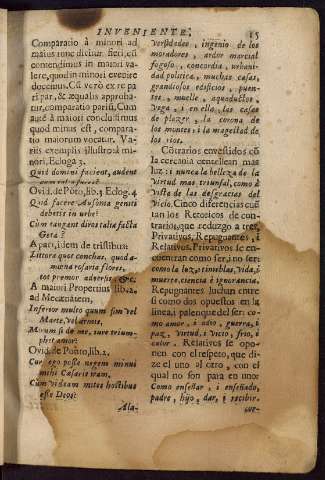 INVENIENTE.
15
Comparatio à minori ad
maius tunc dicitur fieri, cū
contendimus in maiori va-
lere, quod in minori evenire
docemus. Cū verò ex re pa
ri par, & æqualis approba-
tur, comparatio parifi, Cum
autē à maiori concludimus
quod minus est, compara-
tio maiorum vocatur. Va-
riis exemplis illustro à mi-
nori, Ecloga 3.
Quid domini facient, audent
Ovid. de Pōto, lib. 3 Eclog. 4
Quid facere Ausonia geniti
debetis in urbe?
Cum tangant dires talia facta
Geta?
A pari, idem de tristibus
Littora quot conchas, quod a-
mœna rosaria flores,
tot premor adversis, &c.
A maiori Propertius lib. 2,
ad Mecœnatem,
Inferior multo quum sim vel
Marte, vel armis,
Ovid. de Ponto, lib. 2.
Cur ego posse negem minui
mihi Cæsaris iram,
Cum videam mites hostibus
esse Deos?
Ala-
verdades, ingenio de los
moradores, ardor marcial
fogoso, concordia, urbani-
dad politica, muchas casas,
grandiosos edificios, puen-
tes, muelle, aqueductos,
vega, i en ella, las casas
de plazer, la corona de
los montes, i la magestad de
los rios.
Cōtrarios envestidos cō
la cercania centellean mas
luz: i nunca la belleza de la
virtud mas triunfal, como à
vista de las desgracias del
vicio. Cinco diferencias cuē
tan los Retoricos de con-
trarios, que reduzgo a tres,
Privativos, Repugnantes, i
Relativos. Privativos se en-
cuentran como ser, i no ser
como la luz, i tinieblas, vida, i
muerte, ciencia è ignorancia,
Repugnantes luchan entre
si como dos opuestos en la
linea, i palenque del ser: co-
mo amor, i odio, guerra, i
paz, virtud, i vicio, frio, i
calor. Relativos se opo-
nen con el respeto, que di-
ze el uno al otro, con el
qual no son para en uno:
Como enseñar, i enseñado,
padre, hijo, dar, i recibir.
cue-